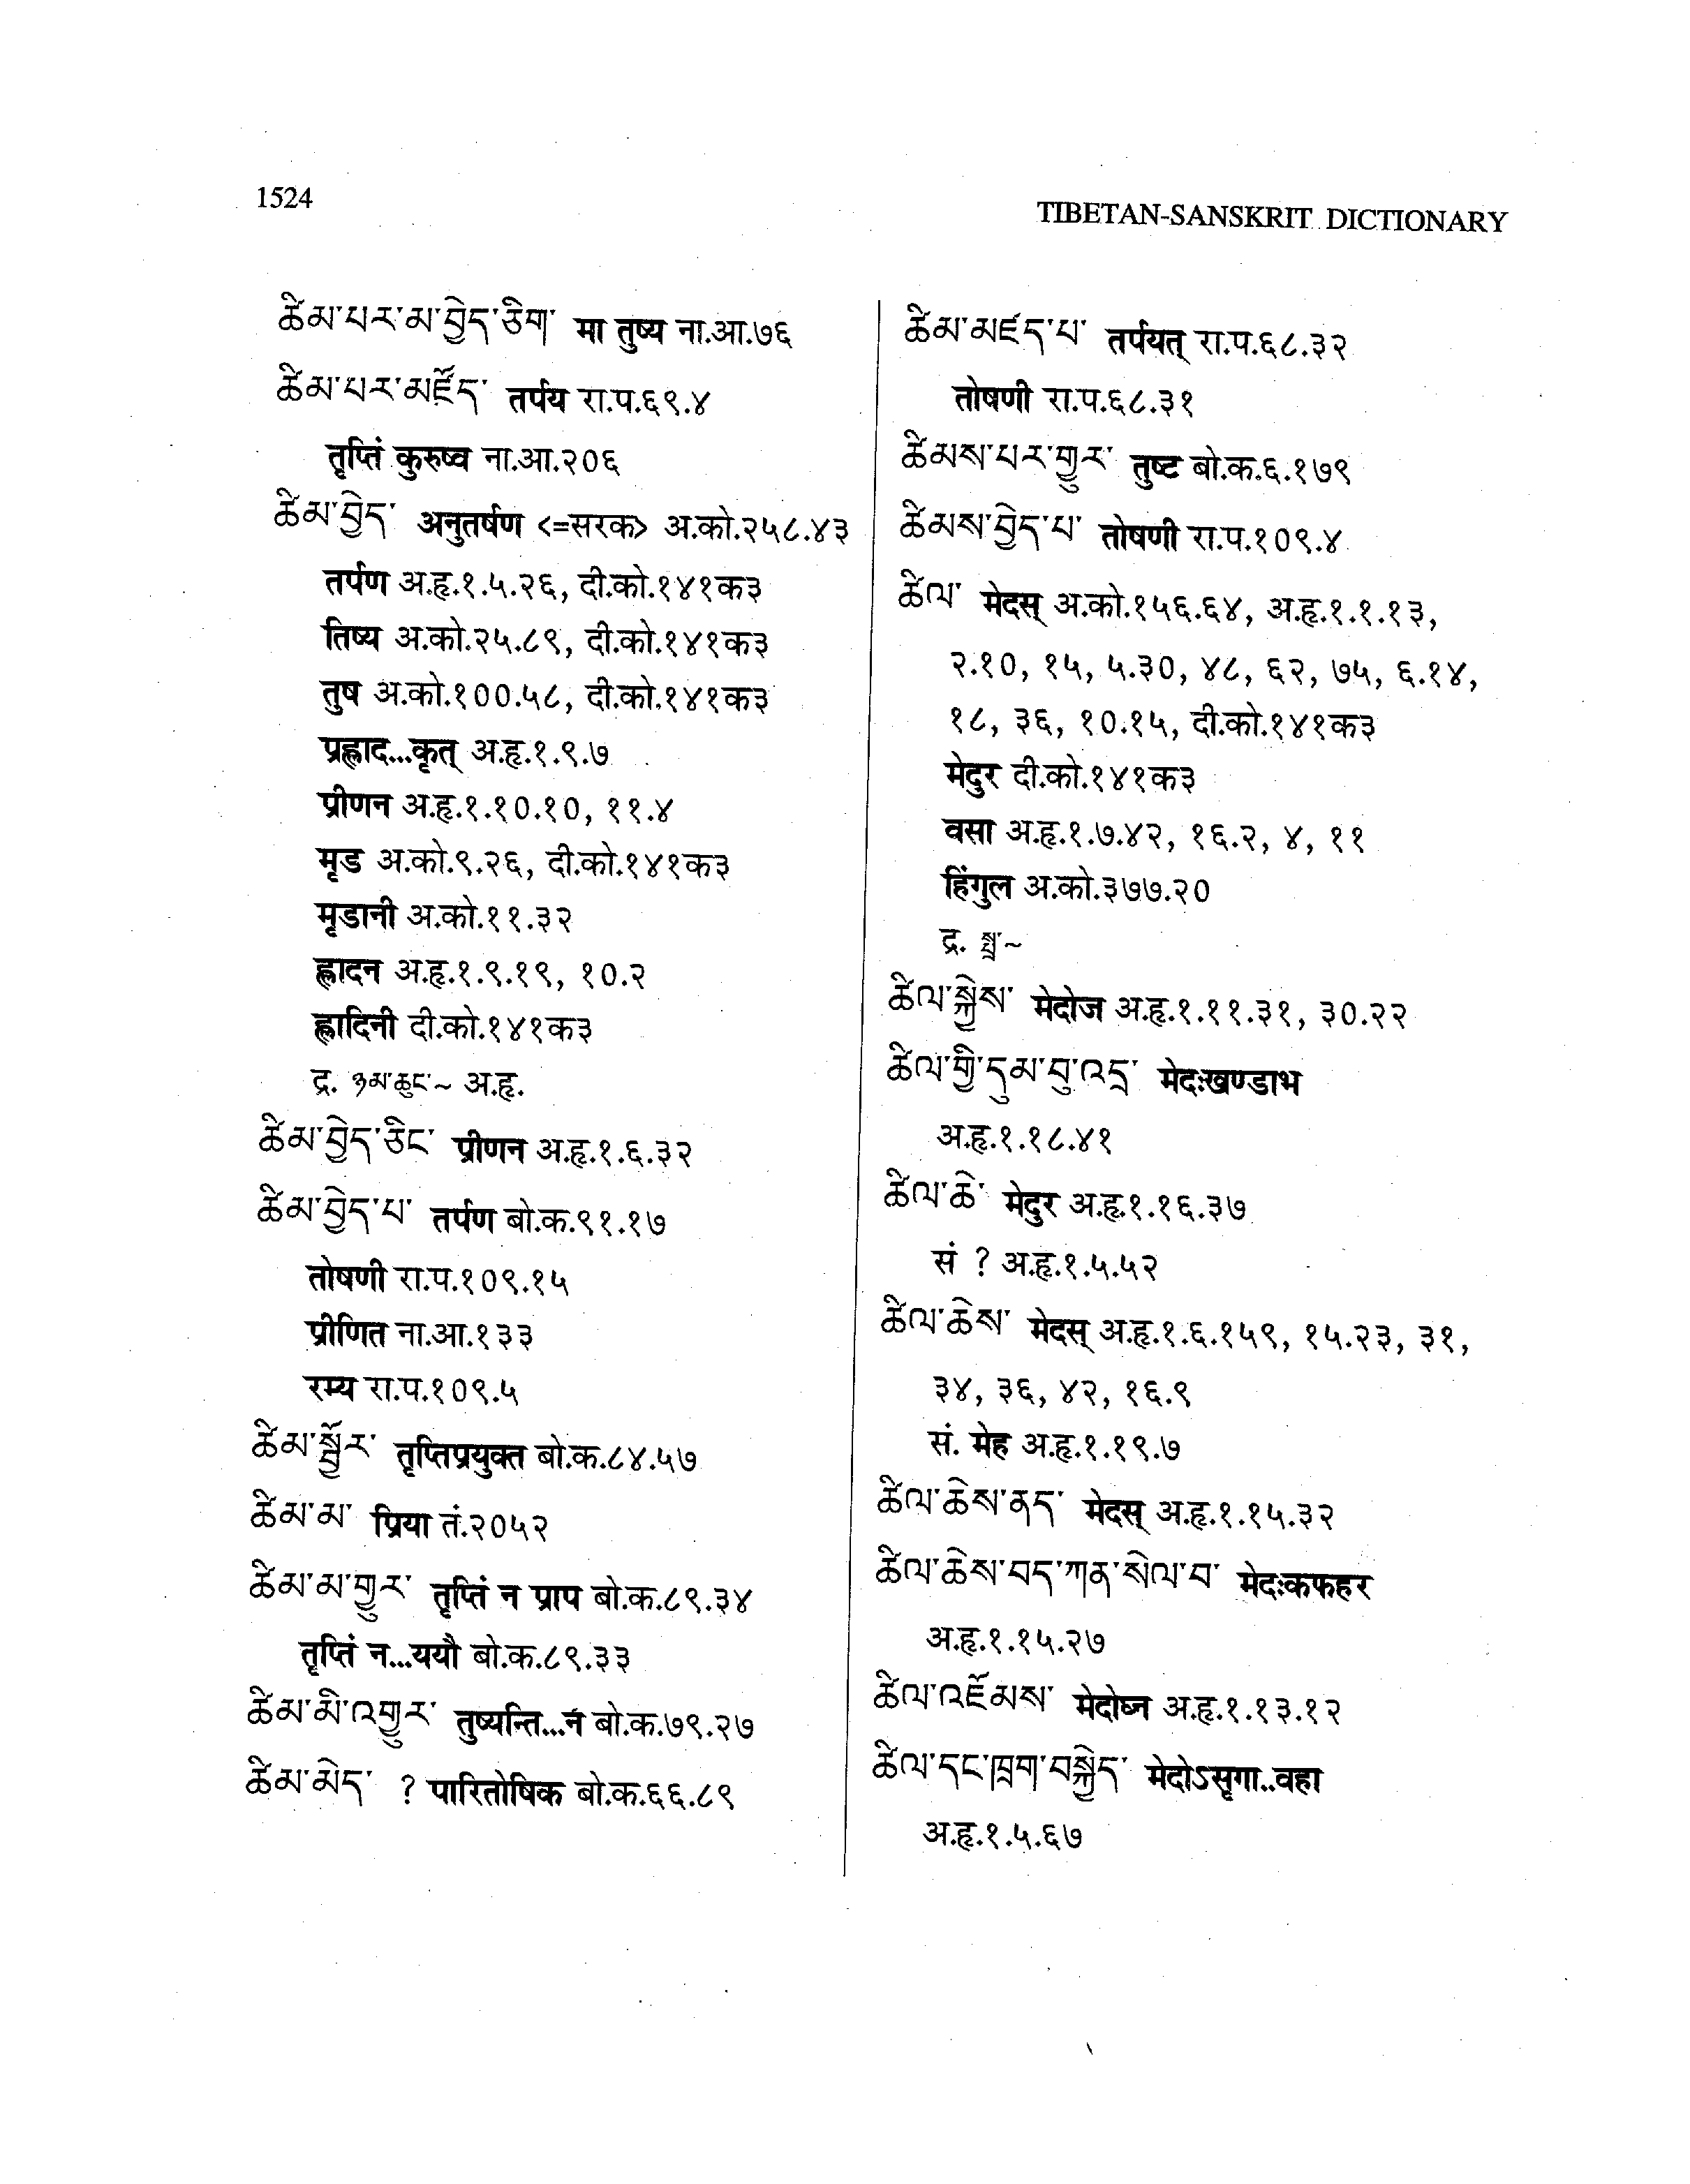 1524
TIBETAN-SANSKRIT DICTIONARY
ཚིམ་པར་མ་བྱེད་ཅིག་ मा तुष्य ना.आ.७६
ཚིམ་པར་མཛོད་ तर्पय रा.प.६९.४
तृप्तिं कुरुष्व ना.आ.२०६
ཚིམ་བྱེད་ अनुतर्षण <=सरक> अ.को.२५८.४३
तर्पण अ.हृ.१.५.२६, दी.को.१४१क३
तिष्य अ.को.२५.८९, दी.को.१४१क३
तुष अ.को.१००.५८, दी.को.१४१क३
प्रह्लाद...कृत् अ.हृ.१.९.७
प्रीणन अ.हृ.१.१०.१०, ११.४
मृड अ.को.९.२६, दी.को.१४१क३
मृडानी अ.को.११.३२
ह्लादन अ.हृ.१.९.१९, १०.२
ह्लादिनी दी.को.१४१क३
द्र. ཉམ་ཆུང་~ अ.हृ.
ཚིམ་བྱེད་ཅིང་ प्रीणन अ.हृ.१.६.३२
ཚིམ་བྱེད་པ་ तर्पण बो.क.९१.१७
तोषणी रा.प.१०९.१५
प्रीणित ना.आ.१३३
रम्य रा.प.१०९.५
ཚིམ་སྦྱོར་ तृप्तिप्रयुक्त बो.क.८४.५७
ཚིམ་མ་ प्रिया तं.२०५२
ཚིམ་མ་གྱུར་ तृप्तिं न प्राप बो.क.८९.३४
तृप्तिं न...ययौ बो.क.८९.३३
ཚིམ་མི་འགྱུར་ तुष्यन्ति...न बो.क.७९.२७
ཚིམ་མེད་ ? पारितोषिक बो.क.६६.८९
ཚིམ་མཛད་པ་ तर्पयत् रा.प.६८.३२
तोषणी रा.प.६८.३१
ཚིམས་པར་གྱུར་ तुष्ट बो.क.६.१७९
ཚིམས་བྱེད་པ་ तोषणी रा.प.१०९.४
ཚིལ་ मेदस् अ.को.१५६.६४, अ.हृ.१.१.१३,
२.१०, १५, ५.३०, ४८, ६२, ७५, ६.१४,
१८, ३६, १०.१५, दी.को.१४१क३
मेदुर दी.को.१४१क३
वसा अ.हृ.१.७.४२, १६.२, ४, ११
हिंगुल अ.को.३७७.२०
द्र. སྤྲ་~
ཚིལ་སྐྱེས་ मेदोज अ.हृ.१.११.३१, ३०.२२
ཚིལ་གྱི་དུམ་བུ་འདྲ་ मेदःखण्डाभ
अ.हृ.१.१८.४१
ཚིལ་ཆེ་ मेदुर अ.हृ.१.१६.३७
सं ? अ.हृ.१.५.५२
ཚིལ་ཆེས་ मेदस् अ.हृ.१.६.१५९, १५.२३, ३१,
३४, ३६, ४२, १६.९
सं. मेह अ.हृ.१.१९.७
ཚིལ་ཆེས་ནད་ मेदस् अ.हृ.१.१५.३२
ཚིལ་ཆེས་བད་ཀན་སེལ་བ་ मेदःकफहर
अ.हृ.१.१५.२७
ཚིལ་འཇོམས་ मेदोघ्न अ.हृ.१.१३.१२
ཚིལ་དང་ཁྲག་བསྐྱེད་ मेदोऽसृगा..वहा
अ.हृ.१.५.६७